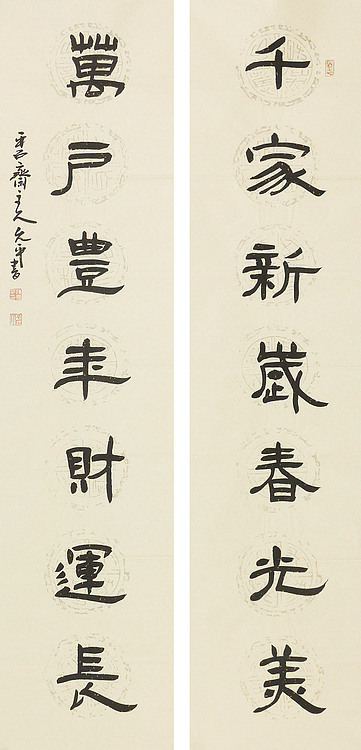 千家新歲春光美
萬戶豐年財運長
齋主人允中書